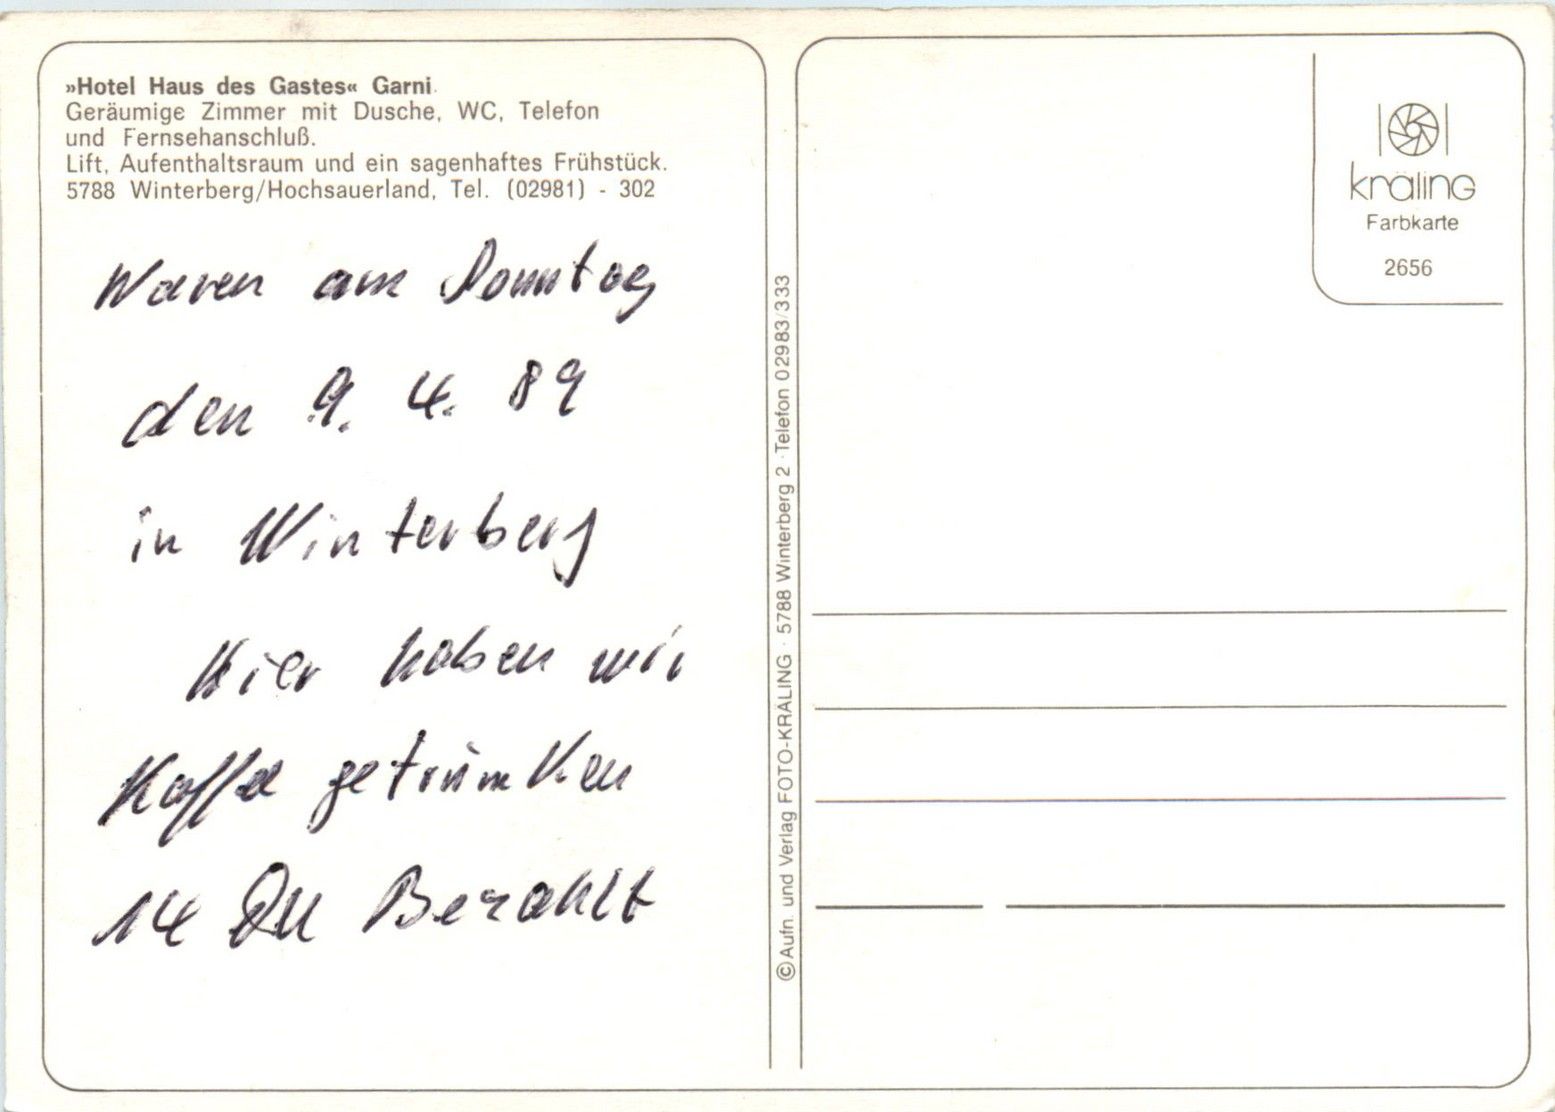 »Hotel Haus des Gastes« Garni
Geräumige Zimmer mit Dusche, WC, Telefon
und Fernsehanschluß.
Lift, Aufenthaltsraum und ein sagenhaftes Frühstück.
5788 Winterberg/Hochsauerland, Tel. (02981) - 302
Waren am Sonntag
den 9. 4. 89
in Winterberg
Hier haben wir
Kaffe getrunken
14 DM Bezahlt
© Aufn. und Verlag FOTO-KRÄLING · 5788 Winterberg 2 · Telefon 02983/333
kräling
Farbkarte
2656